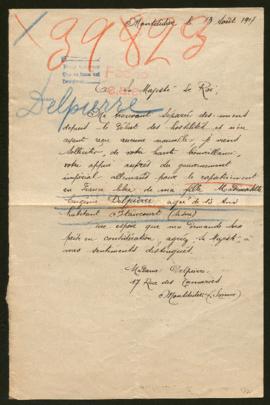 Montdidier le 19 Août 191
39823
Delpierre
A Sa Majesté Le Roi,
Me trouvant séparée des miens
depuis le début des hostilités et n'en
ayant reçu aucune nouvelle, je viens
solliciter, de votre haute bienveillance
votre appui auprès du gouvernement
impérial allemand pour le rapatriement
en France libre de ma fille Mademoiselle
Eugénie Delpierre âgée de 13 ans
habitant
espoir que ma demande sera
prise en considération, agréez, Majesté,
mes sentiments distingués.
Madame Delpierre
17 Rue des Tanneries
Montdidier (Somme)